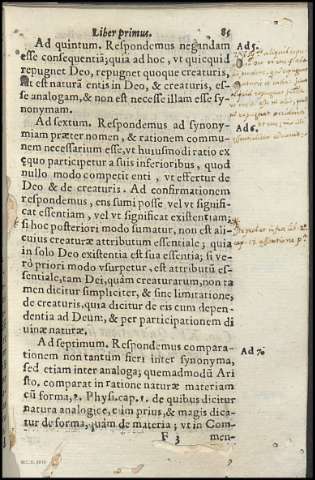 Liber primus. 85
Ad quintum. Respondemus negandam
esse consequentia; quia ad hoc, vt quicquid
repugnet Deo, repugnet quoque creaturis,
est naturā entis in Deo, & creaturis, es-
se analogam, & non est necesse illam esse sy-
nonymam.
Ad sextum. Respondemus ad synony-
miam præter nomen, & rationem commu-
nem necessarium esse, vt huiusmodi ratio ex
æquo participetur a suis inferioribus, quod
nullo modo competit enti, vt effertur de
Deo & de creaturis. Ad confirmationem
respondemus, ens sumi posse vel vt signifi-
cat essentiam, vel vt significat existentiam;
si hoc posteriori modo sumatur, non est ali-
cuius creaturæ attributum essentiale; quia
in solo Deo existentia est sua essentia; si ve-
ró priori modo vsurpetur, est attributū es-
sentiale, tam Dei, quàm creaturarum, non ta
men dicitur simpliciter, & sine limitatione,
de creaturis, quia dicitur de eis cum depen-
dentia ad Deum, & per participationem di
uinæ naturæ.
Ad septimum. Respondemus compara-
tionem non tantum fieri inter synonyma,
sed etiam inter analoga; quemadmodū Ari
sto. comparat in ratione naturæ materiam
cū forma, 2. Phys. cap. 1. de quibus dicitur
natura analogice, e im prius, & magis dica-
tur de forma, quàm de materia; vt in Com-
F 3 men-
Ad 5.
Ad 6.
Ad 7.